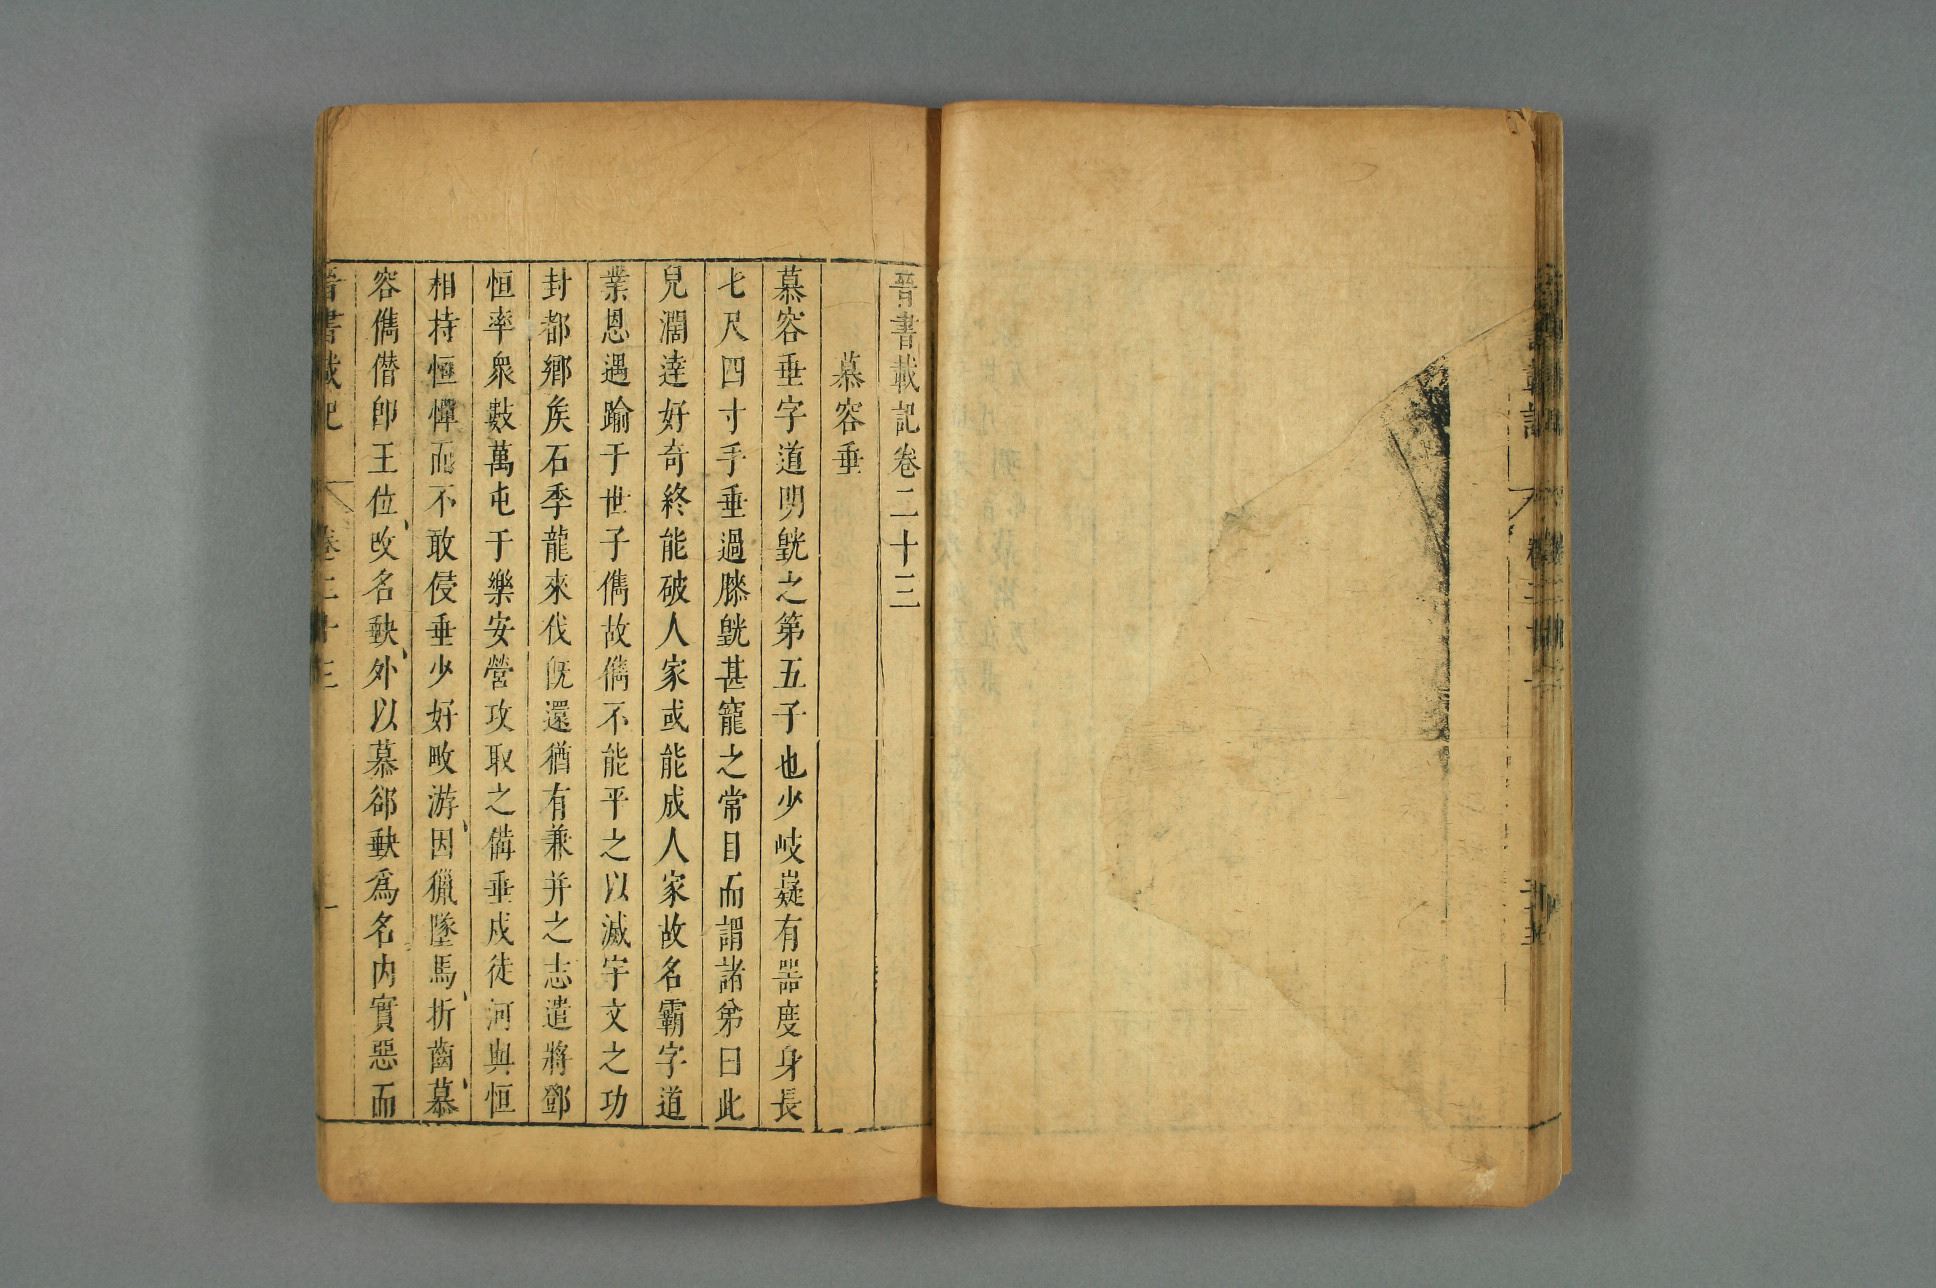 晉書載記卷二十三
慕容垂
慕容垂字道明皝之第五子也少岐嶷有器度身長
七尺四寸手垂過膝皝甚寵之常目而謂諸弟曰此
兒濶達好奇終能破人家或能成人家故名霸字道
業恩遇踰于世子儁故儁不能平之以滅宇文之功
封都鄉侯石季龍來伐旣還猶有兼并之志遣將鄧
恒率衆數萬屯于樂安營攻取之備垂戍徒河與恒
相持恒憚而不敢侵垂少好畋游因獵墜馬折齒慕
容儁僭卽王位改名𡙇外以慕郤𡙇爲名内實惡而
晉書載記 卷二十三 一